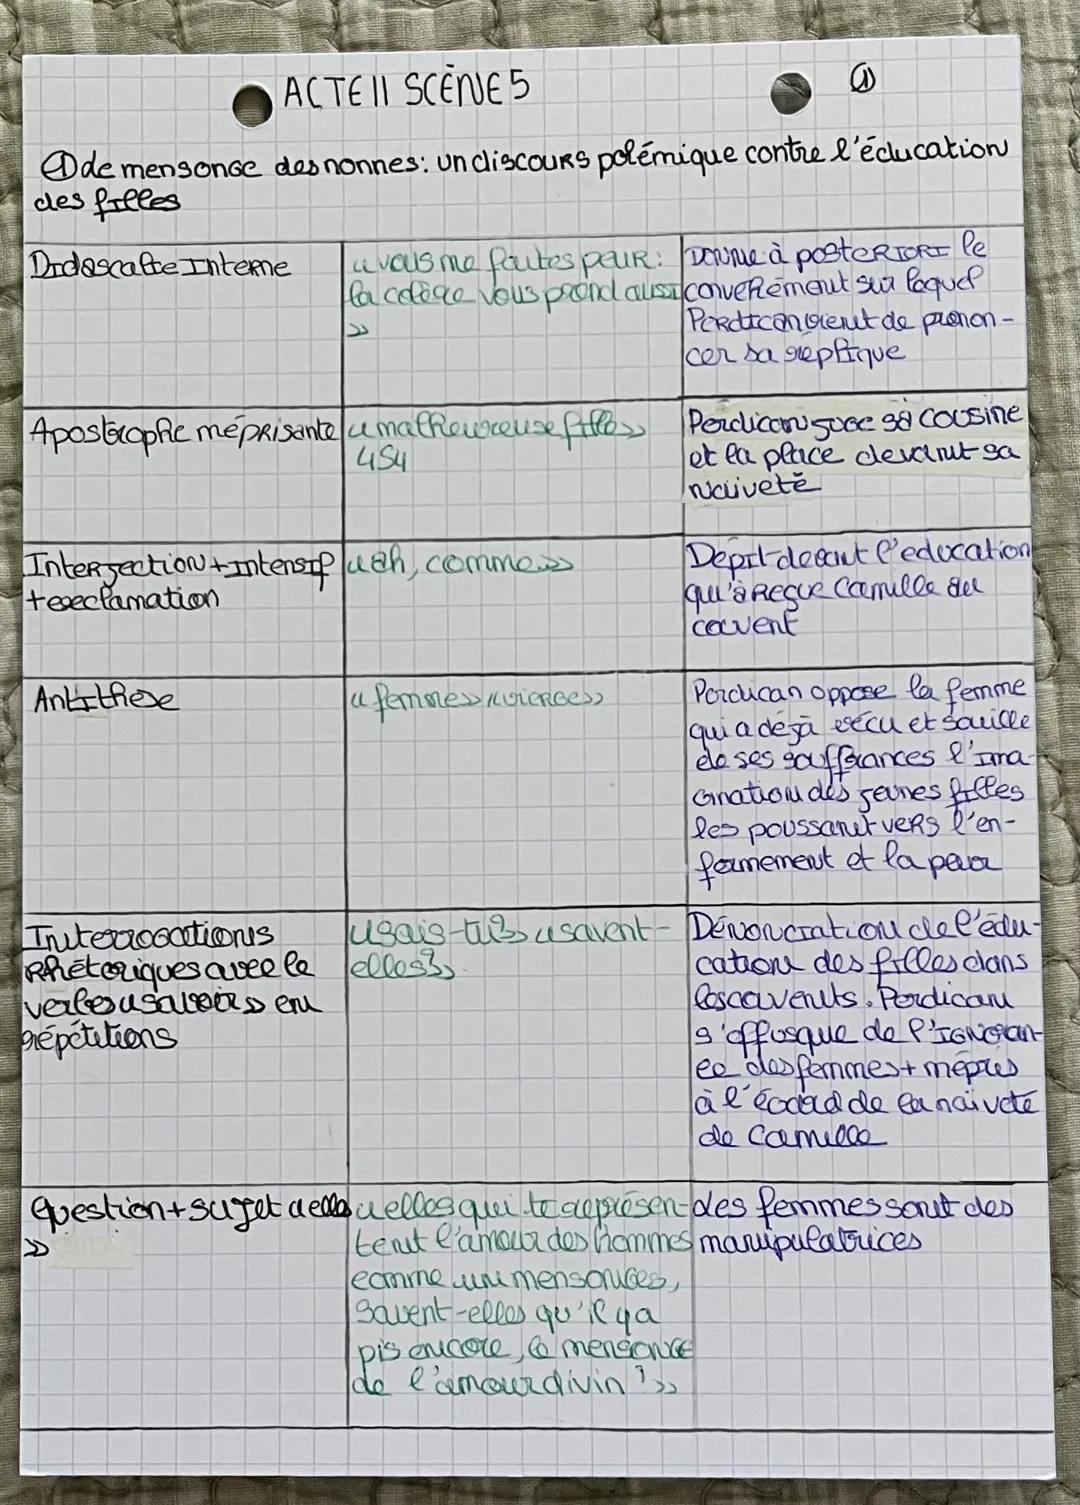 ACTE II SCÈNE 5
①
① de mensonge des nonnes: un discours polémique contre l'éducation
des filles
Didascalie Interne
« vous me faites peur:
la colère vous prend aussi
»
Donne à posteriori le
Perdican vient de pronon-
cer sa réplique
Apostrophe méprisante
« malheureuse fille »
454
Perdican juge sa cousine
et la place devant sa
naïveté
Interjection + Intensif
+ exclamation
« ah, comme »
Dépit devant l'education
qu'à reçue Camille au
couvent
Antithèse
« femmes » « vierges »
Perdican oppose la femme
qui a déjà vécu et souille
de ses souffrances l'ima-
gination des jeunes filles
les poussant vers l'en-
fermement et la peur
Interrogations
Rhétoriques avec le
verbe « savoir » en
répétitions
« sais-tu? » « savent-
elles? ».
Dénonciation de l'édu-
cation des filles dans
les couvents. Perdican
s'offusque de l'ignoran-
ce des femmes + mépris
à l'égard de la naïveté
de Camille
Question + sujet « elles
»
« elles qui te représen-
tent l'amour des hommes
comme un mensonges,
savent-elles qu'il y a
pis encore, le mensonge
de l'amour divin? »
des femmes sont des
manipulatrices